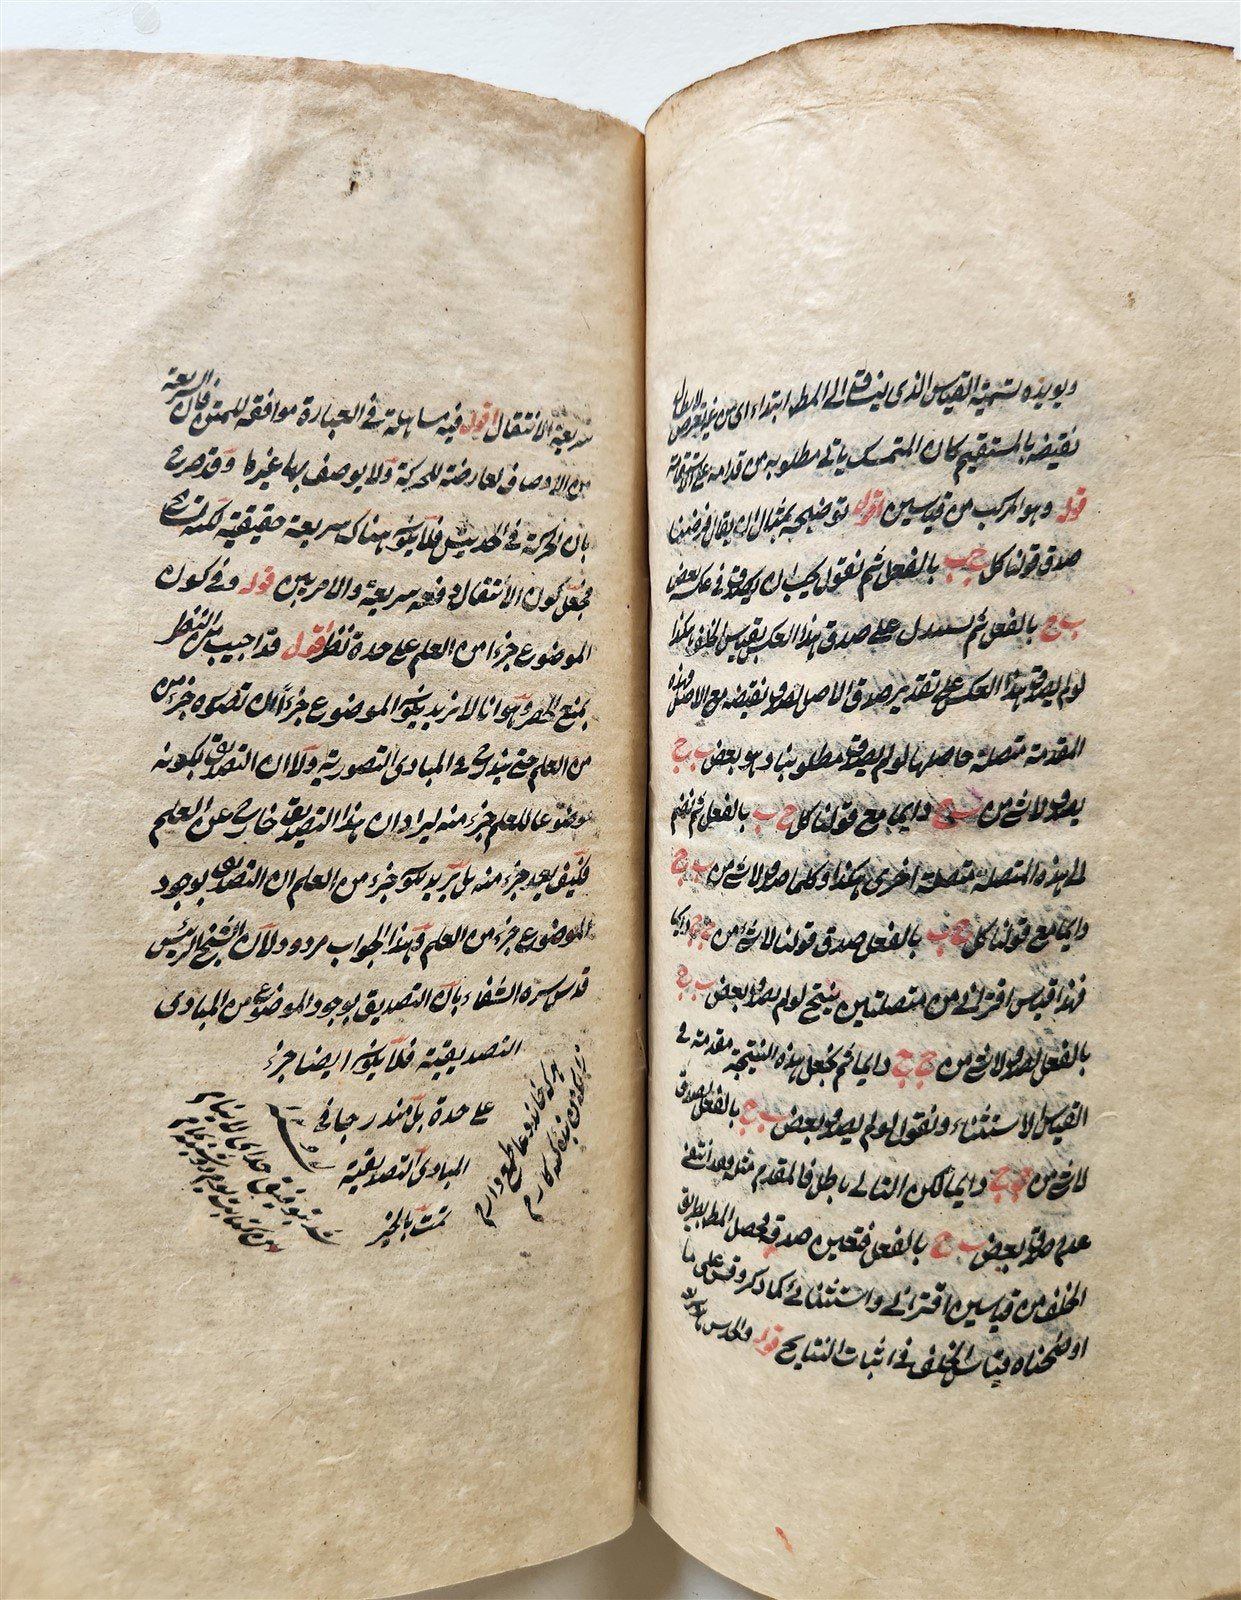 ويويده تسمية القياس الذى ينساق الى المط ابتداء اى من غير تعرض لابطال
نقيضه بالمستقيم كان المتمسك ياتى مطلوبه من قدامه على الاستقامة
قوله وهو المركب من قياسين اقول توضيحه بمثال ان يقال فرضنا
صدق قولنا كل ج ب بالفعل ثم نقول يجب ان يصدق فى عكسه بعض
ب ج بالفعل ثم نستدل على صدق هذا العكس بقياس الخلف هكذا
لو لم يصدق هذا العكس على تقدير صدق الاصل لصدق نقيضه مع الاصل وهذه
المقدمة متصلة حاصلها لو لم يصدق مطلوبنا وهو بعض ب ج
يصدق لاشئ من ب ج دايما مع قولنا كل ج ب بالفعل ثم نضم
الى هذه المتصلة متصلة اخرى هكذا وكلما صدق لاشئ من ب ج
دايما مع قولنا كل ج ب بالفعل صدق قولنا لاشئ من ج ج دايما
فهذا قياس اقترانى من متصلتين ينتج لو لم يصدق بعض ب ج
بالفعل لصدق لاشئ من ج ج دايما ثم نجعل هذه النتيجة مقدمة فى
القياس الاستثناء ونقول لو لم يصدق بعض ب ج بالفعل لصدق
لاشئ من ج ج دايما لكن التالى باطل فالمقدم مثله وهو انتفى
عدم صدق بعض ب ج بالفعل فتعين صدقه فحصل المط بطريق
الخلف من قياسين اقترانى واستثنائى كما ذكر وقس على ما
اوضحناه قياس الخلف فى اثبات النتايج قوله والحدس
سريعة الانتقال اقول فيه مساهلة فى العبارة موافقه للمتن فان السريعة
من الاوصاف العارضة للحركة ولا يوصف بها غيرها وقد صرح
بان الحركة فى الحدس فلا يكون هناك سريعة حقيقية لكنه
فجعل كون الانتقال دفعه سريعة والامر بين قوله وفى كون
الموضوع جزءا من العلم على حدة نظر اقول قد اجيب من النظر
بمنع الحصر وهو انا لا نريد بكون الموضوع جزءا ان تصوره جزء من
من العلم حتى يندرج فى المبادى التصورية ولا ان التصديق بكونه
موضوعا للعلم جزء منه ليراد ان هذا التصديق خارج عن العلم
فكيف يعد جزء منه بل نريد بكونه جزء من العلم ان التصديق بوجود
الموضوع جزء من العلم وهذا الجواب مردود لان الشيخ الرئيس
قدس سره الشفاء بان التصديق بوجود الموضوع من المبادى
التصديقية فلا يكون ايضا جزء
على حدة بل مندرجا فى
المبادى التصديقية
تمت بالخير
هر که خواند دعا طمع دارم
زانکه من بنده گنه کارم